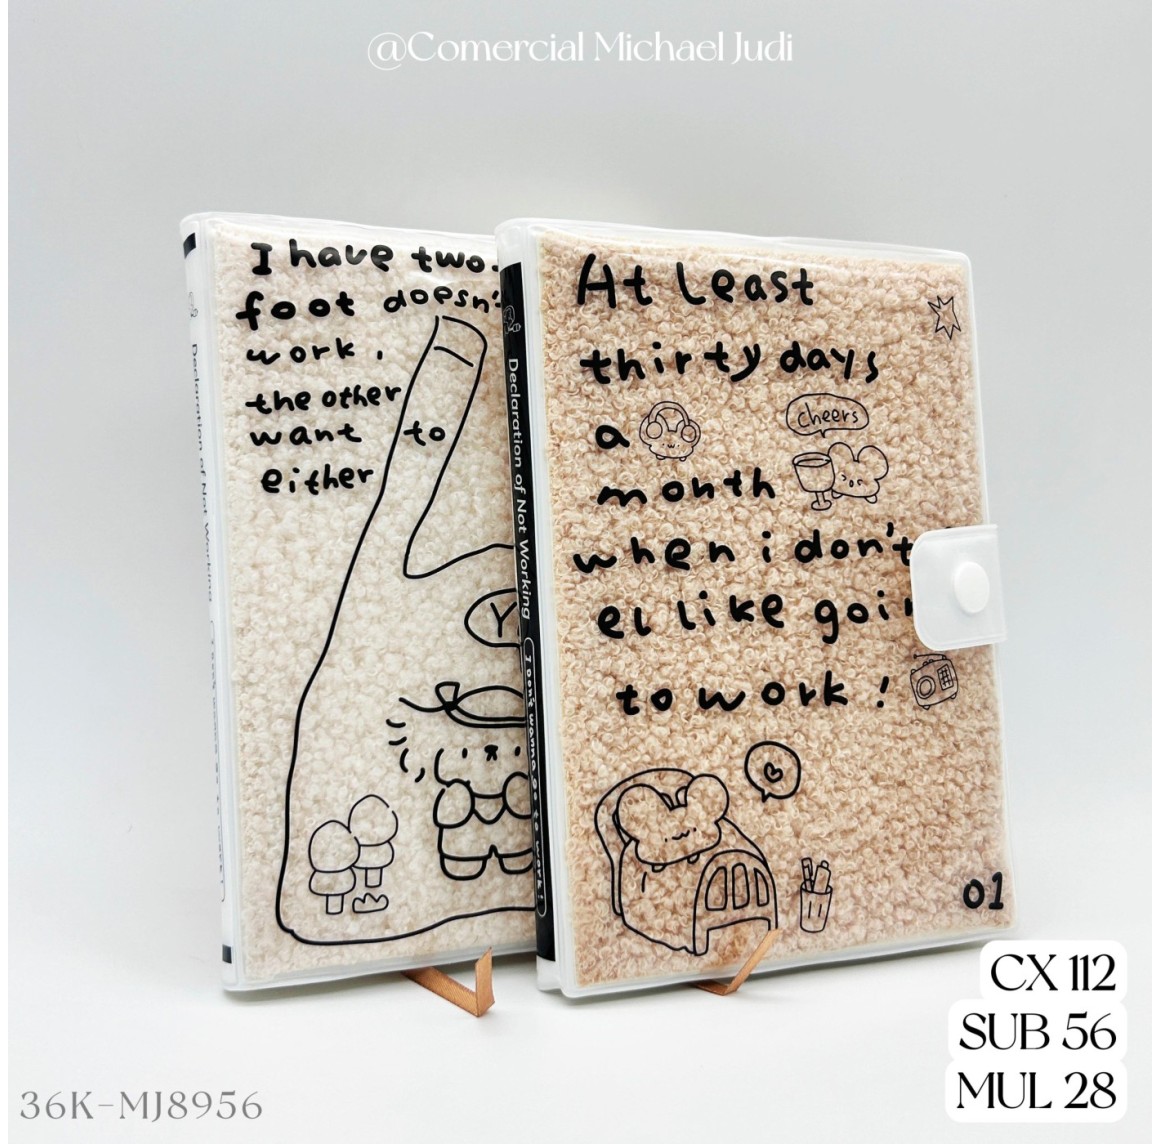 @Comercial Michael Judi
I have two.
foot doesn't
work.
the other
want to
either
Y
Declaration of Not Working
At least
thirty days
a
cheers
month
when i don't
el like goin
to work!
01
Declaration of Not Working
I don't wanna go to work!
CX 112
SUB 56
MUL 28
36K-MJ8956